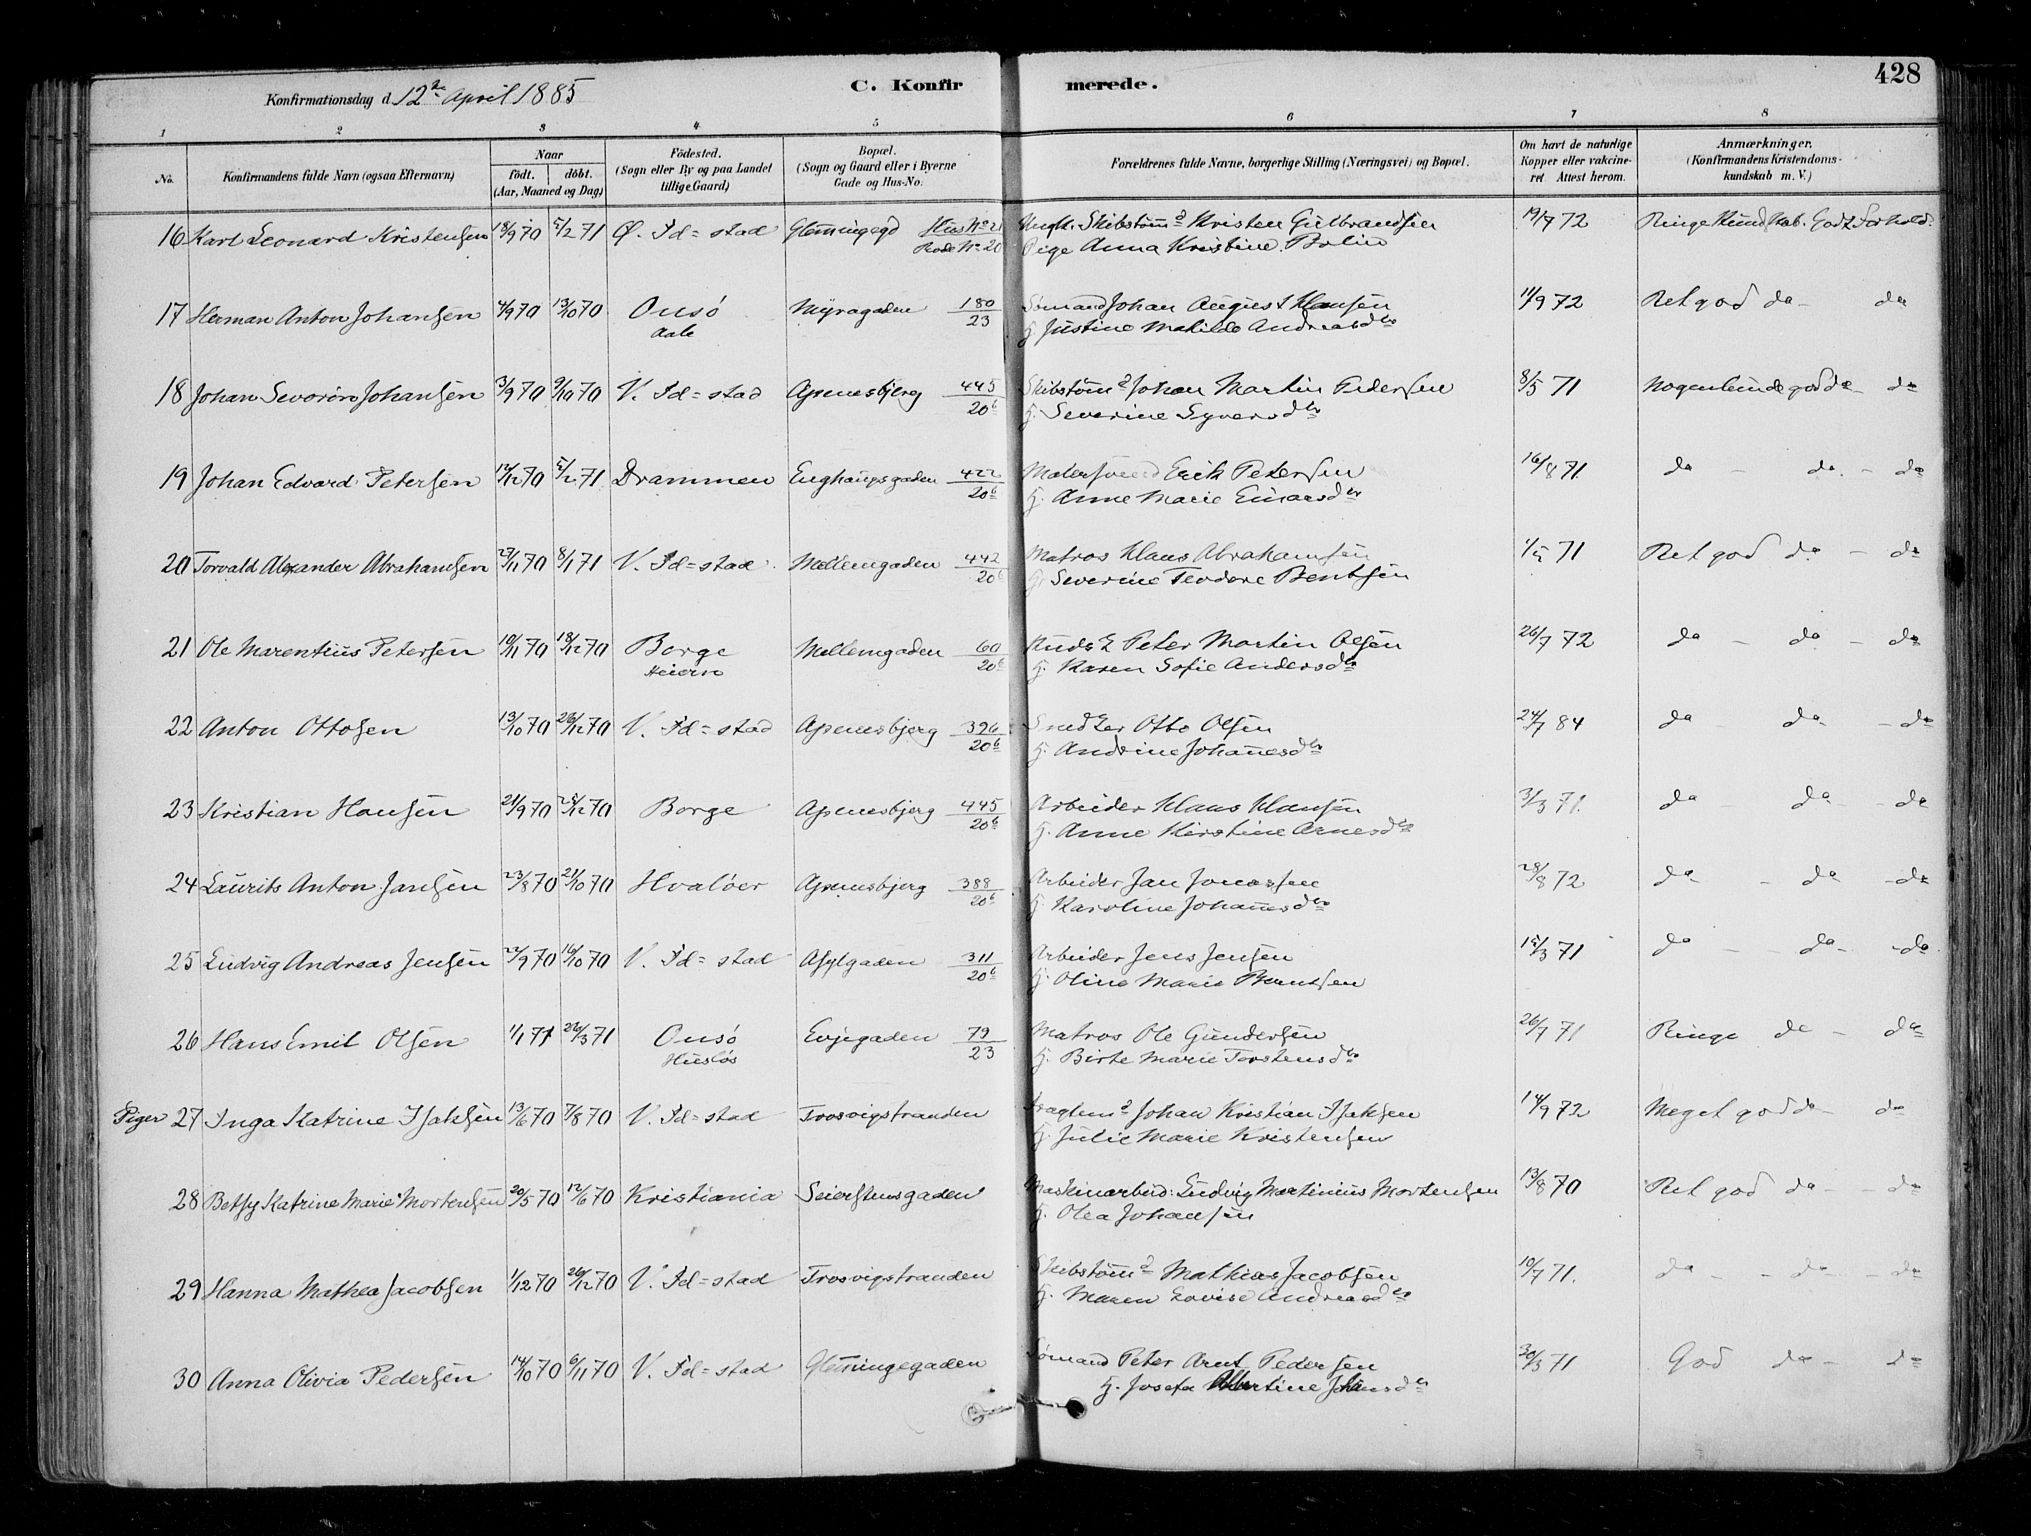 428
Konfirmationsdag d. 12te April 1885 C. Konfirmerede.
1 2 3 4 5 6 7 8
No. Konfirmandens fulde Navn (ogsaa Efternavn) Naar födt. döbt. (Aar, Maaned og Dag) Födested. (Sogn eller By og paa Landet tillige Gaard) Bopæl. (Sogn og Gaard eller i Byerne Gade og Hus-No. Forældrenes fulde Navne, borgerlige Stilling (Næringsvei) og Bopæl. Om havt de naturlige Kopper eller vaccineret. Attest herom. Anmærkninger. (Konfirmandens Kristendomskundskab m. V.)
16 Karl Leonard Kristensen 18/9 70 5/2 71 Ø. Fd=stad Glemingegd Hus No 21 Ungk. Skibstømd Kristen Gulbrandsen 19/7 72 Ringe Kundskab. Godt Forhold.
Rode No 20 Pige Anna Kristine
17 Herman Anton Johansen 4/9 70 13/10 70 Onsö Myragaden 180/23 Sømand Johan August Hansen 11/9 72 Ret god do - do
Aale H. Justine Matilde Andreasdtr
18 Johan Severin Johansen 3/9 70 9/10 70 V. Fd=stad Apenesbjerg 445/20b Skibstømd Johan Martin Pedersen 8/5 71 Nogenlunde god do - do
H. Severine Syversdtr
19 Johan Edvard Petersen 12/12 70 5/2 71 Drammen Enghaugsgaden 422/20b Malersvend Erik Petersen 16/8 71 do - do - do
H. Anne Marie Einarsdtr
20 Torvald Alexander Abrahamsen 27/11 70 8/1 71 V. Fd=stad Mellemgaden 442/20b Matros Klaus Abrahamsen 1/5 71 Ret god do - do
H. Severine Teodore Bentsen
21 Ole Marentius Petersen 10/11 70 18/12 70 Borge Mellemgaden 60/20b Peter Martin Olsen 26/7 72 do - do - do
Heiern H. Karen Sofie Andersdtr
22 Anton Ottosen 13/10 70 26/12 70 V. Fd=stad Apenesbjerg 396/20b Otto Olsen 24/7 84 do do - do
H. Andrine Johanesdtr
23 Kristian Hansen 21/9 70 28/12 70 Borge Apenesbjerg 445/20b Arbeider Klaus Hansen 3/3 71 do do - do
H. Anne Kirstine Arnesdtr
24 Laurits Anton Jansen 23/8 70 21/10 70 Hvaløer Apenesbjerg 388/20b Arbeider Jan Jonassen 28/8 72 do - do - do
H. Karoline Johanesdtr
25 Ludvig Andreas Jensen 22/9 70 16/10 70 V. Fd=stad Asylgaden 311/20b Arbeider Jens Jensen 15/3 71 do - do - do
H. Oline Marie Berntsen
26 Hans Emil Olsen 1/1 71 26/3 71 Onsö Evjegaden 79/23 Matros Ole Gundersen 26/7 71 Ringe do - do
Husløs H. Birte Marie Torstensdtr
Piger 27 Inga Katrine Isaksen 13/6 70 7/8 70 V. Fd=stad Trosvigstranden Fragtemd Johan Kristian Isaksen 14/9 72 Meget god do - do
H. Julie Marie Kristensen
28 Betsy Katrine Marie Mortensen 20/5 70 12/6 70 Kristiania Seierstensgaden Maskinarbeid: Ludvig Martinius Mortensen 13/8 70 Ret god do - - do
H. Olea Johansen
29 Hanna Mathea Jacobsen 1/12 70 26/12 70 V. Fd=stad Trosvigstranden Skibstømd Mathias Jacobsen 10/7 71. do - - do - - do
H. Maren Lovise Andreasdtr
30 Anna Olivia Pedersen 14/10 70 6/11 70 V. Fd=stad Glemingegaden Sømand Peter Arnt Pedersen 30/3 71 God do - do
H. Josefa Albertine Johansdtr